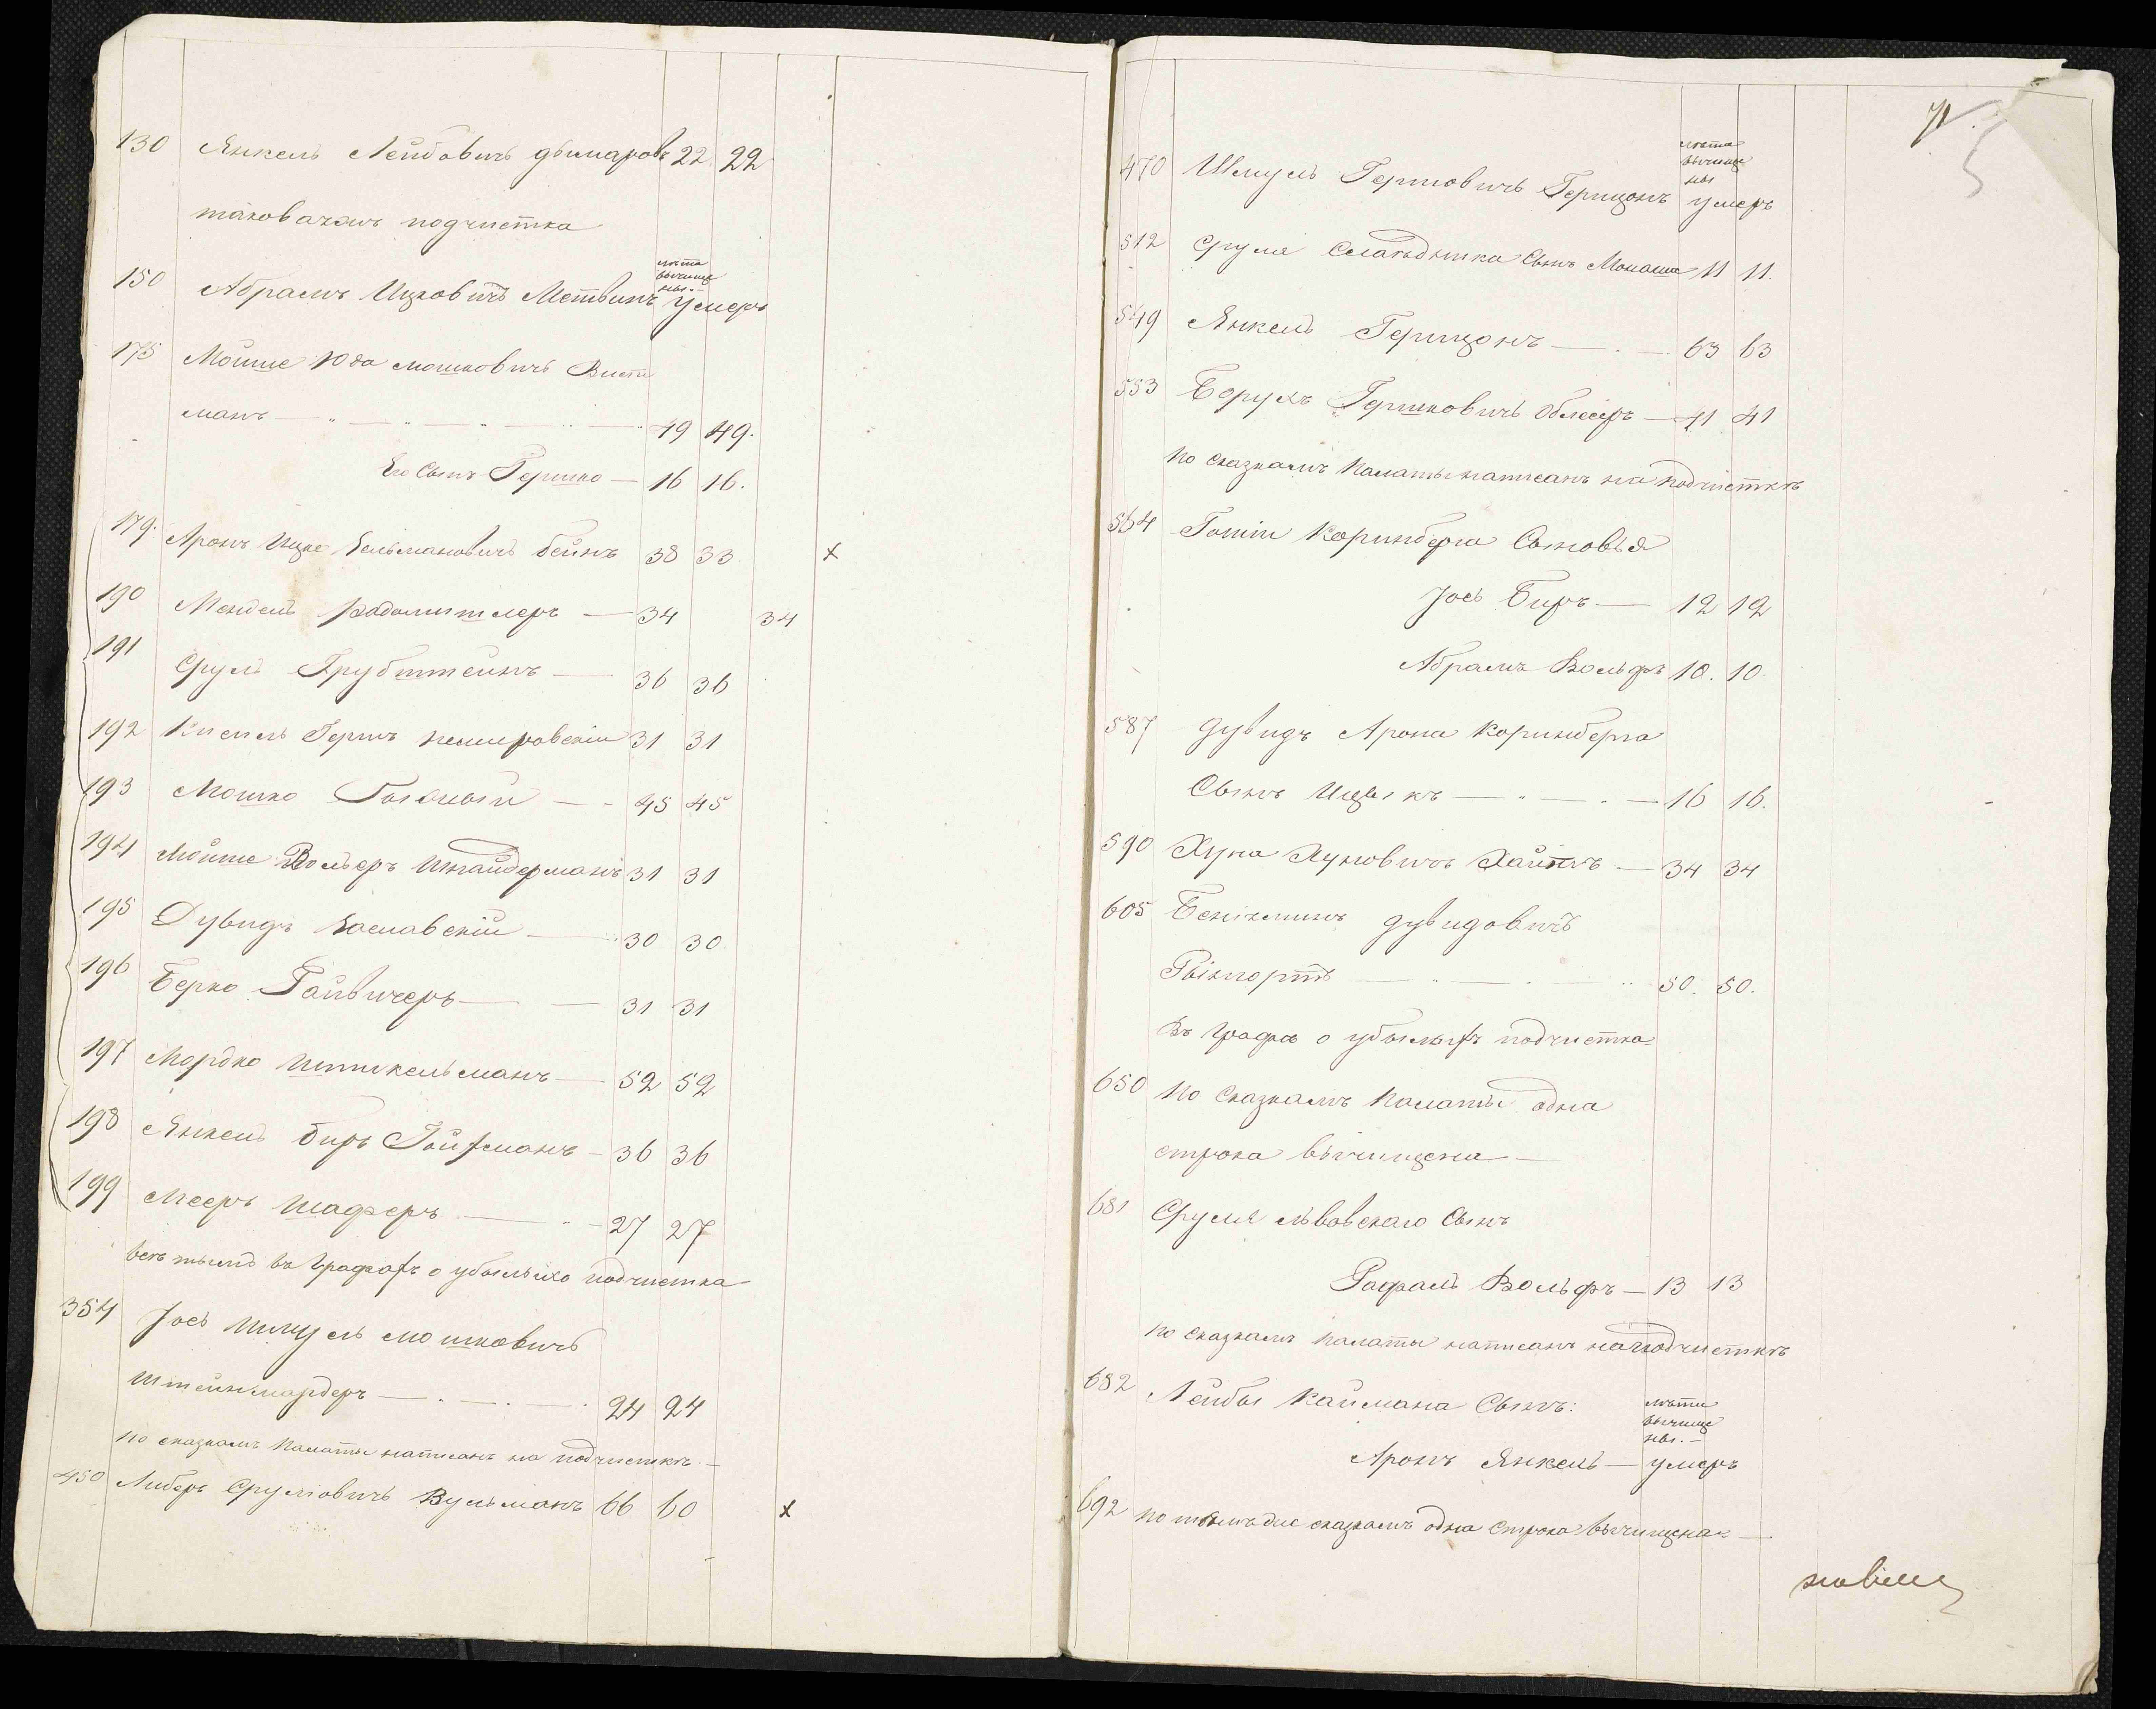 130 Янкель Лейбовичъ дымаровъ 22. 22
таковажъ подчистка
лѣта
вычище
ны.-
150 Абрамъ Ицковичъ Метвинъ умеръ
175 Мойше Юда мошковичъ Вист
манъ 49 49.
Его Сынъ Гершко 16 16.
179. Аронъ Ицко Зельмановичъ бейнъ 38 33 х
190 Мендель радомишлеръ 34 34
191 Сруль Грубштейнъ 36 36
192 Кисиль Гершъ немировскій 31 31
193 Мошко 45 45
194 Мойше Шнайдерманъ 31 31
195 Дувидъ Заславскій 30 30
196 Берко Гайвичеръ 31 31
197 Мордко Шпикельманъ 52 52
198 Янкель биръ Гойхманъ 36 36
199 Мееръ Шаферъ 27 27
въ графахъ о убылыхъ подчистка
354 Іось Шмуль мошковичъ
Штейнмардеръ 24 24
по сказкамъ Палаты написанъ на подчисткѣ.
450 Либеръ Сруліовичъ Вульманъ 66 60 х
лѣта
вычище
ны
470 Шмуль Гершовичъ Герщонъ умеръ
512 Сруля Сынъ Монаша 11 11.
549 Янкель Герщонъ 63 63
553 Борухъ Гершковичъ 41 41
по сказкамъ Палаты написанъ на подчисткѣ
564 Коринберга Сыновья
Іось Биръ 12 12
Абрамъ Вольфъ 10. 10
587 дувидъ Арона Коринберга
Сынъ Ицыкъ 16 16.
590 Хуна Хуновичъ 34 34
605 Беніяминъ дувидовичъ
50. 50.
Въ графѣ о убылыхъ подчистка
650 по Сказкамъ Палаты одна
строка вычищена
681 Сруля львовскаго Сынъ
Рафаль Вольфъ 13 13
по сказкамъ палаты написанъ на подчисткѣ
682 Лейбы Каймана Сынъ:
лѣта
вычище
ны.-
Аронъ Янкель умеръ
692 по тѣмъ же сказкамъ одна строка вычищена